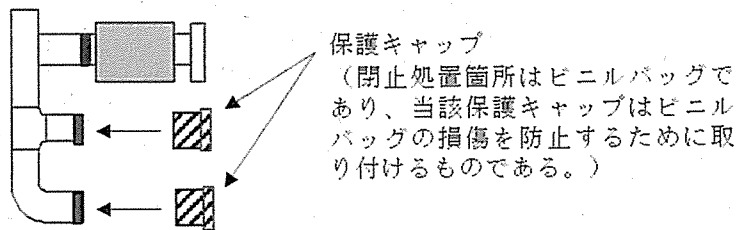 保護キャップ
（閉止処置箇所はビニルバッグで
あり、当該保護キャップはビニル
バッグの損傷を防止するために取
り付けるものである。）